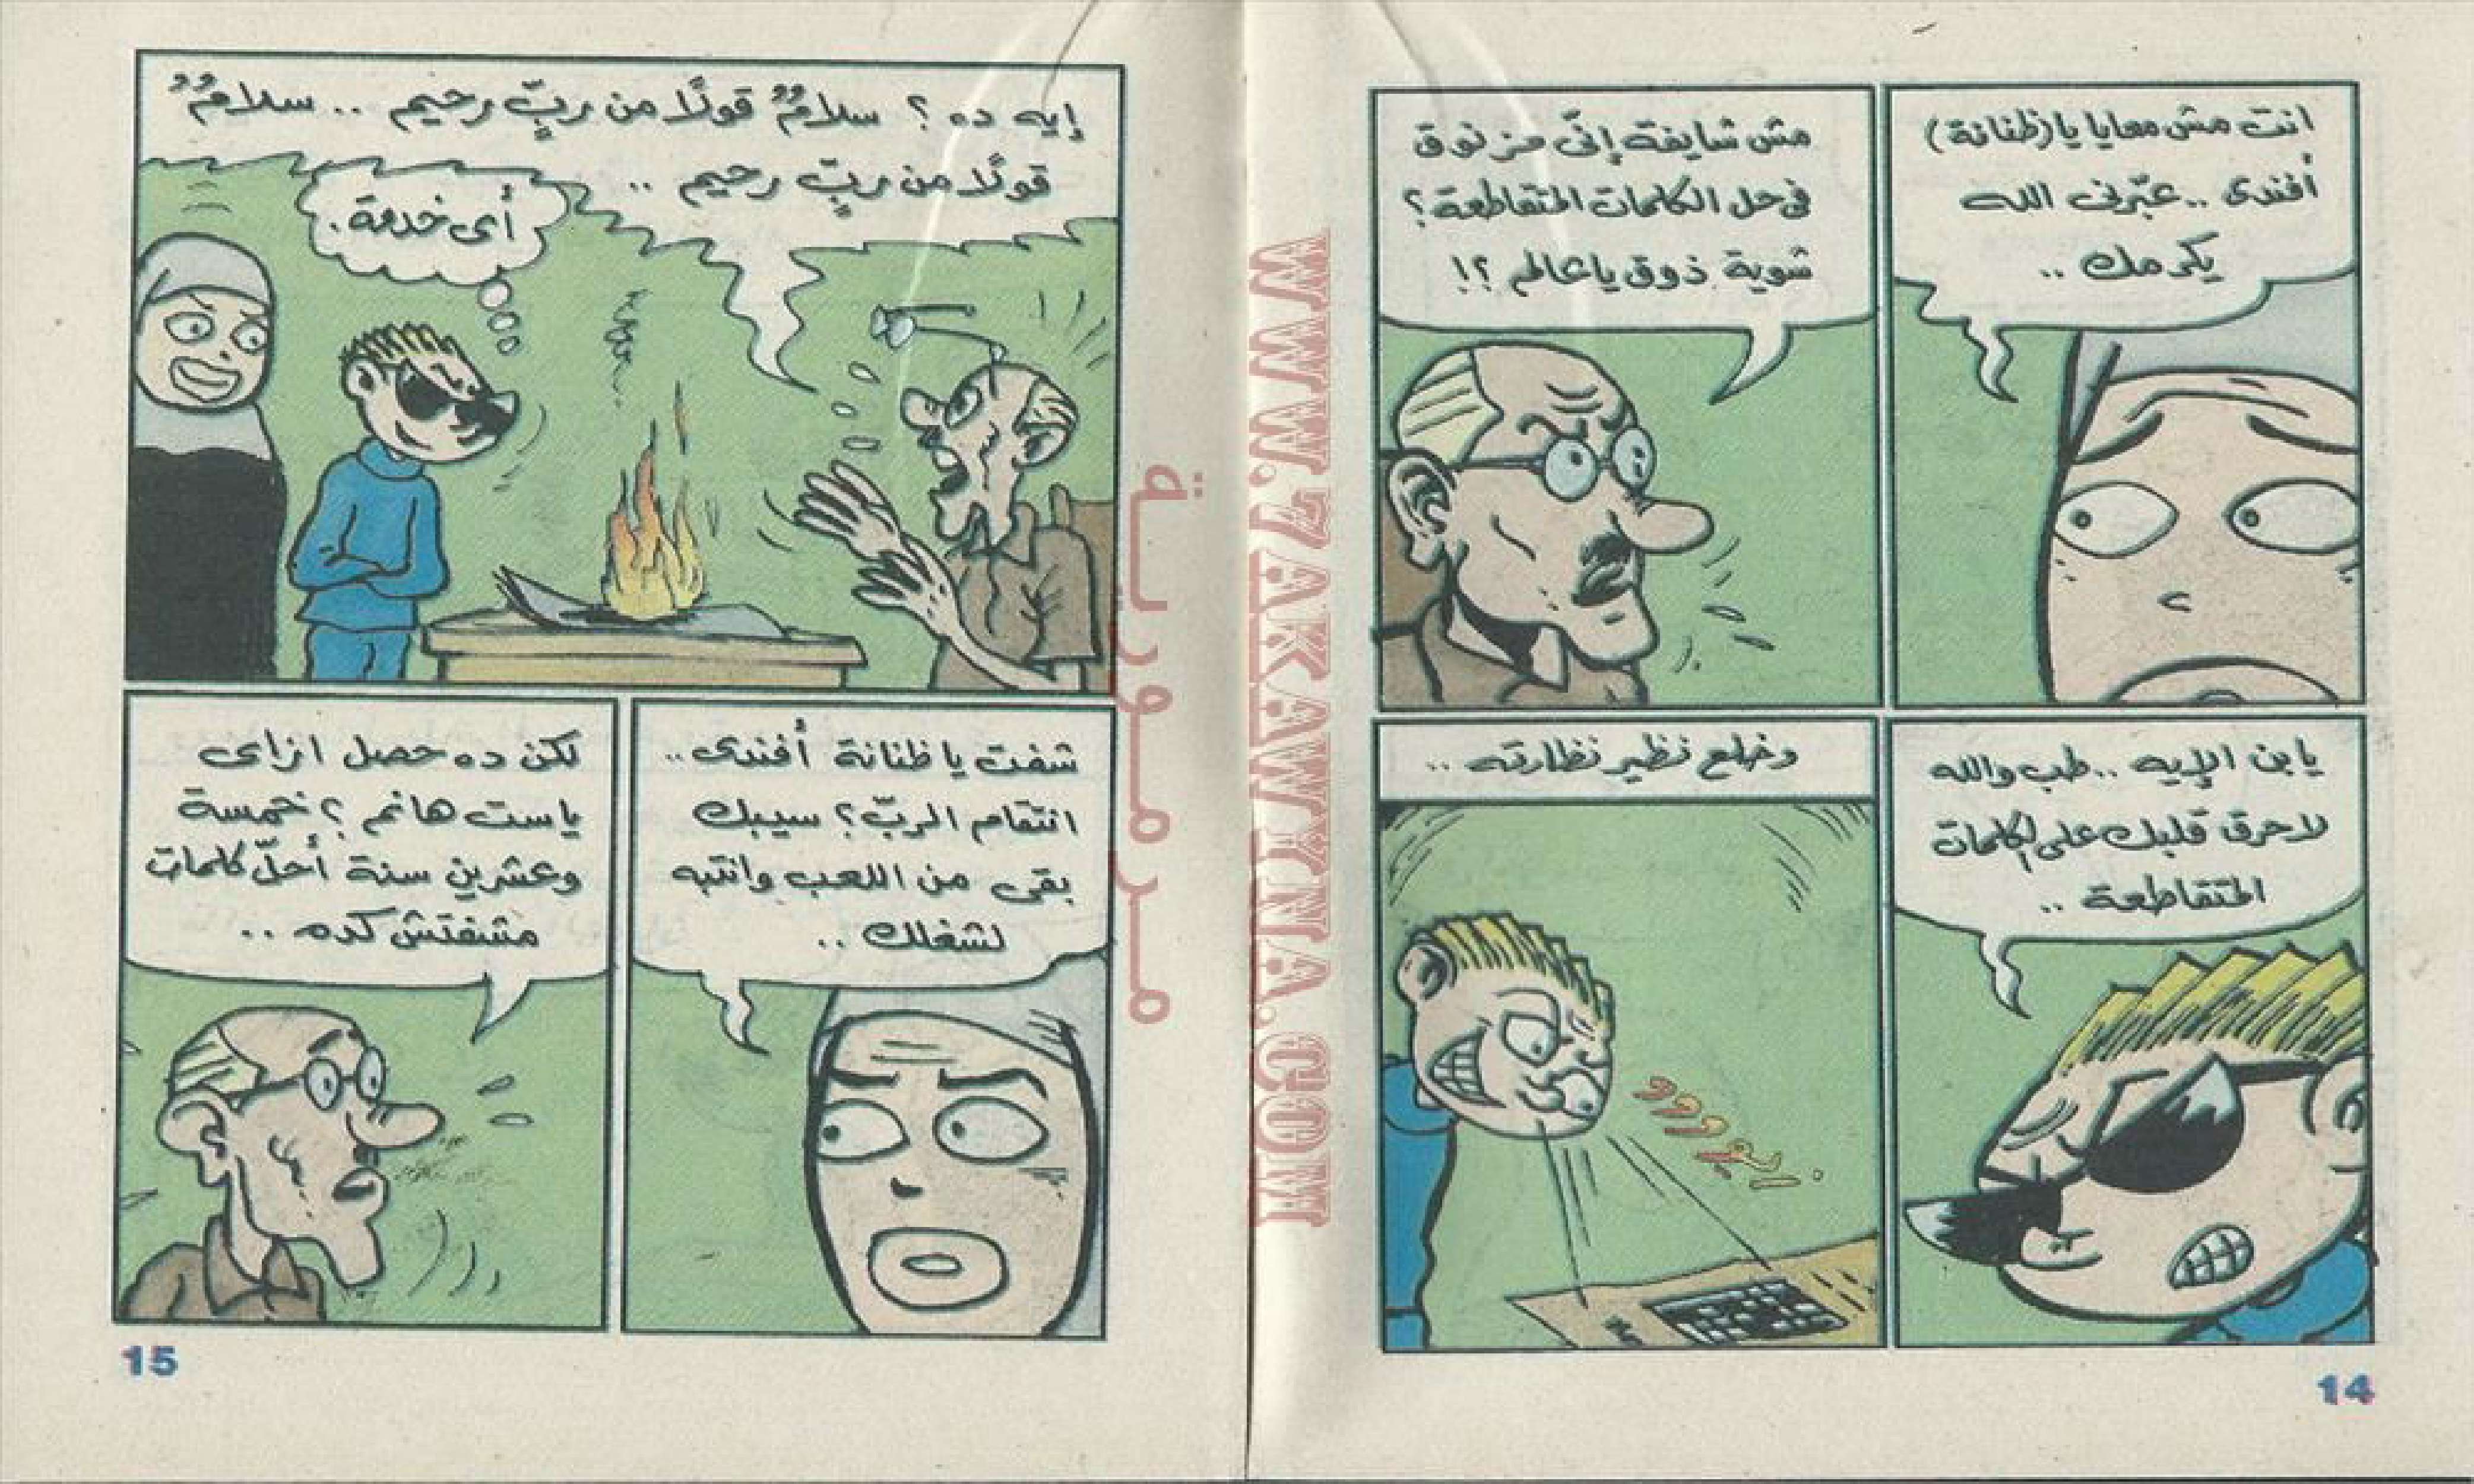 انت مش معايا يا (ظنانة)
أفندى .. عبّرنى الله
يكرمك ..
مش شايفة إنّى مزنوق
فى حل الكلمات المتقاطعة ؟
شوية ذوق يا عالم ؟!
يا بن الإيه .. طب والله
لاحرق قلبك على الكلمات
المتقاطعة ..
وخلع نظير نظارته ..
14
إيه ده ؟ سلامٌ قولًا من ربٍّ رحيم .. سلامٌ
قولًا من ربٍّ رحيم ..
أى خدمة .
شفت يا ظنانة أفندى ..
انتقام الربّ ؟ سيبك
بقى من اللعب وانتبه
لشغلك ..
لكن ده حصل ازاى
يا ست هانم ؟ خمسة
وعشرين سنة أحلّ كلمات
مشفتش كده ..
15
مرمورية
WWW.7AKAWINA.COM